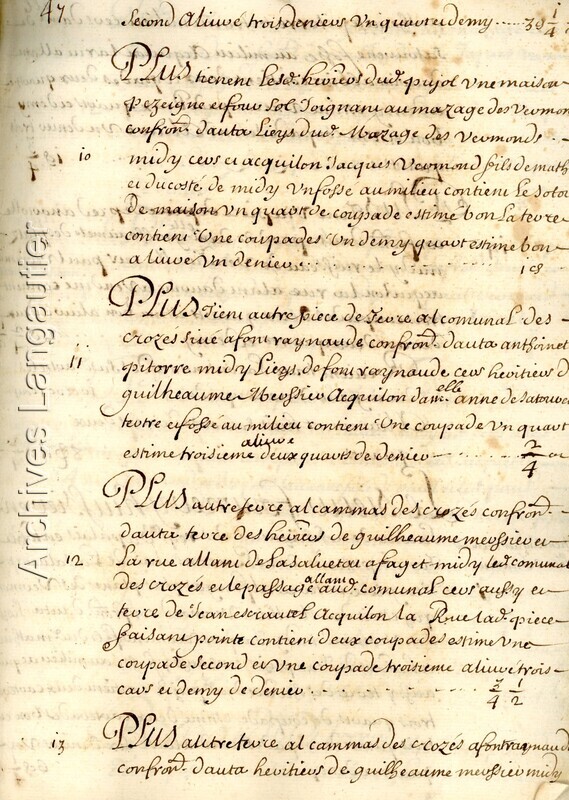 47
second Aliuré trois deniers un quart et demy 3d 1/4
PLUS tienent les d. heritiers dud. pujol une maison
pezeigne et four sol Joignant au mazage des vermon
confron. d'auta Lieys dud. Mazage des vermonds
10 midy cers et acquilon Jacques vermond fils de math
et du costé de midy un fosse au milieu contient Le sotou
De maison un quart de coupade estimé bon La terre
contient une coupades un demy quart estimé bon
aliuré un denier 1d
PLUS Tient autre piece de Terre al comunal des
crozés sive a font raynaude confron. d'auta anthoinet
11 pitorre midy Lieys de font raynaude cers heritiers d
guilheaume Meyssier Acquilon dam.elle anne de
tertre et fossé au milieu contient une coupade un quart
estime troisieme aliuré deux quarts de denier 2/4
PLUS autre terre al cammas des crozés confron.
d'auta terre des heritiers de guilheaume meyssier et
12 La rue allant de La salvetat a faget midy led. comunal
des crozés et le passage allant aud. comunal cers aussy et
terre de Jean escautel Acquilon la Rue lad. piece
faisant pointe contient deux coupades estimé une
coupade second et une coupade troisieme aliuré trois
cars et demy de denier 3/4 1/2
13 PLUS autre terre al cammas des crozés a font raynaud
confron. d'auta heritiers de guilheaume meyssier midy
Archives Langautier